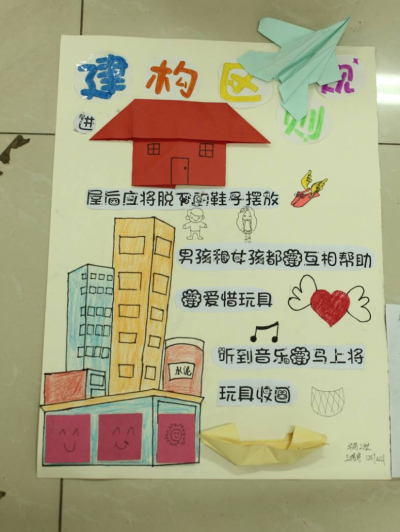 建构区规则
进
屋后应将脱下的鞋子摆放
男孩和女孩都要互相帮助
要爱惜玩具
听到音乐要马上将
玩具收回
水泥